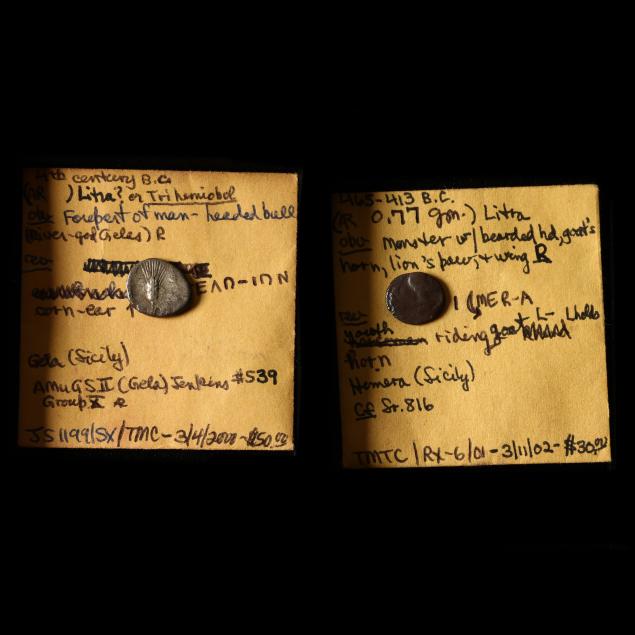 4th century B.C.
(AR ) Litra? or Trihemiobol
obv Forepart of man-headed bull
(River-god Gelas) R
rev
ΕΛΟ-ΙΟΝ
corn-ear ↑
Gela (Sicily)
AMuGS II (Gela) Jenkins #539
Group X
JS1199/SX/TMC-3/4/2000-$50.00
465-413 B.C.
(AR 0.77 gm.) Litra
obv- monster w/ bearded hd, goat's
horn, lion's paw, + wing R
IMER-A
rev youth riding goat L- L holds
horn
Himera (Sicily)
Cf Sr. 816
TMTC/RX-6/01-3/11/02-$30.00